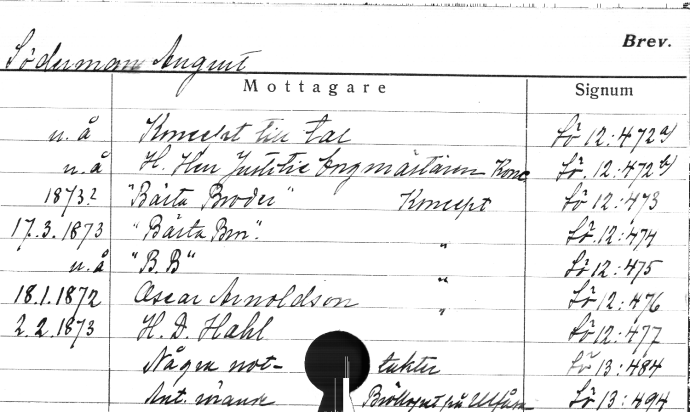 Brev.
Söderman August
Mottagare Signum
u. å Koncept till tal Sö 12:472 a)
u. å H. Herr Justitie Borgmästaren Konc Sö. 12:472 b)
1873? "Bästa Broder" Koncept Sö 12:473
17.3.1873 "Bästa Bror". " Sö. 12:474
u. å "B.B" " Sö 12:475
18.1.1872 Oscar Arnoldson " Sö 12:476
2.2.1873 H. D. Hahl Sö 12:477
Några not- takter Sö 13:484
Ant. Bröllopet på Ulfåsa Sö 13:494